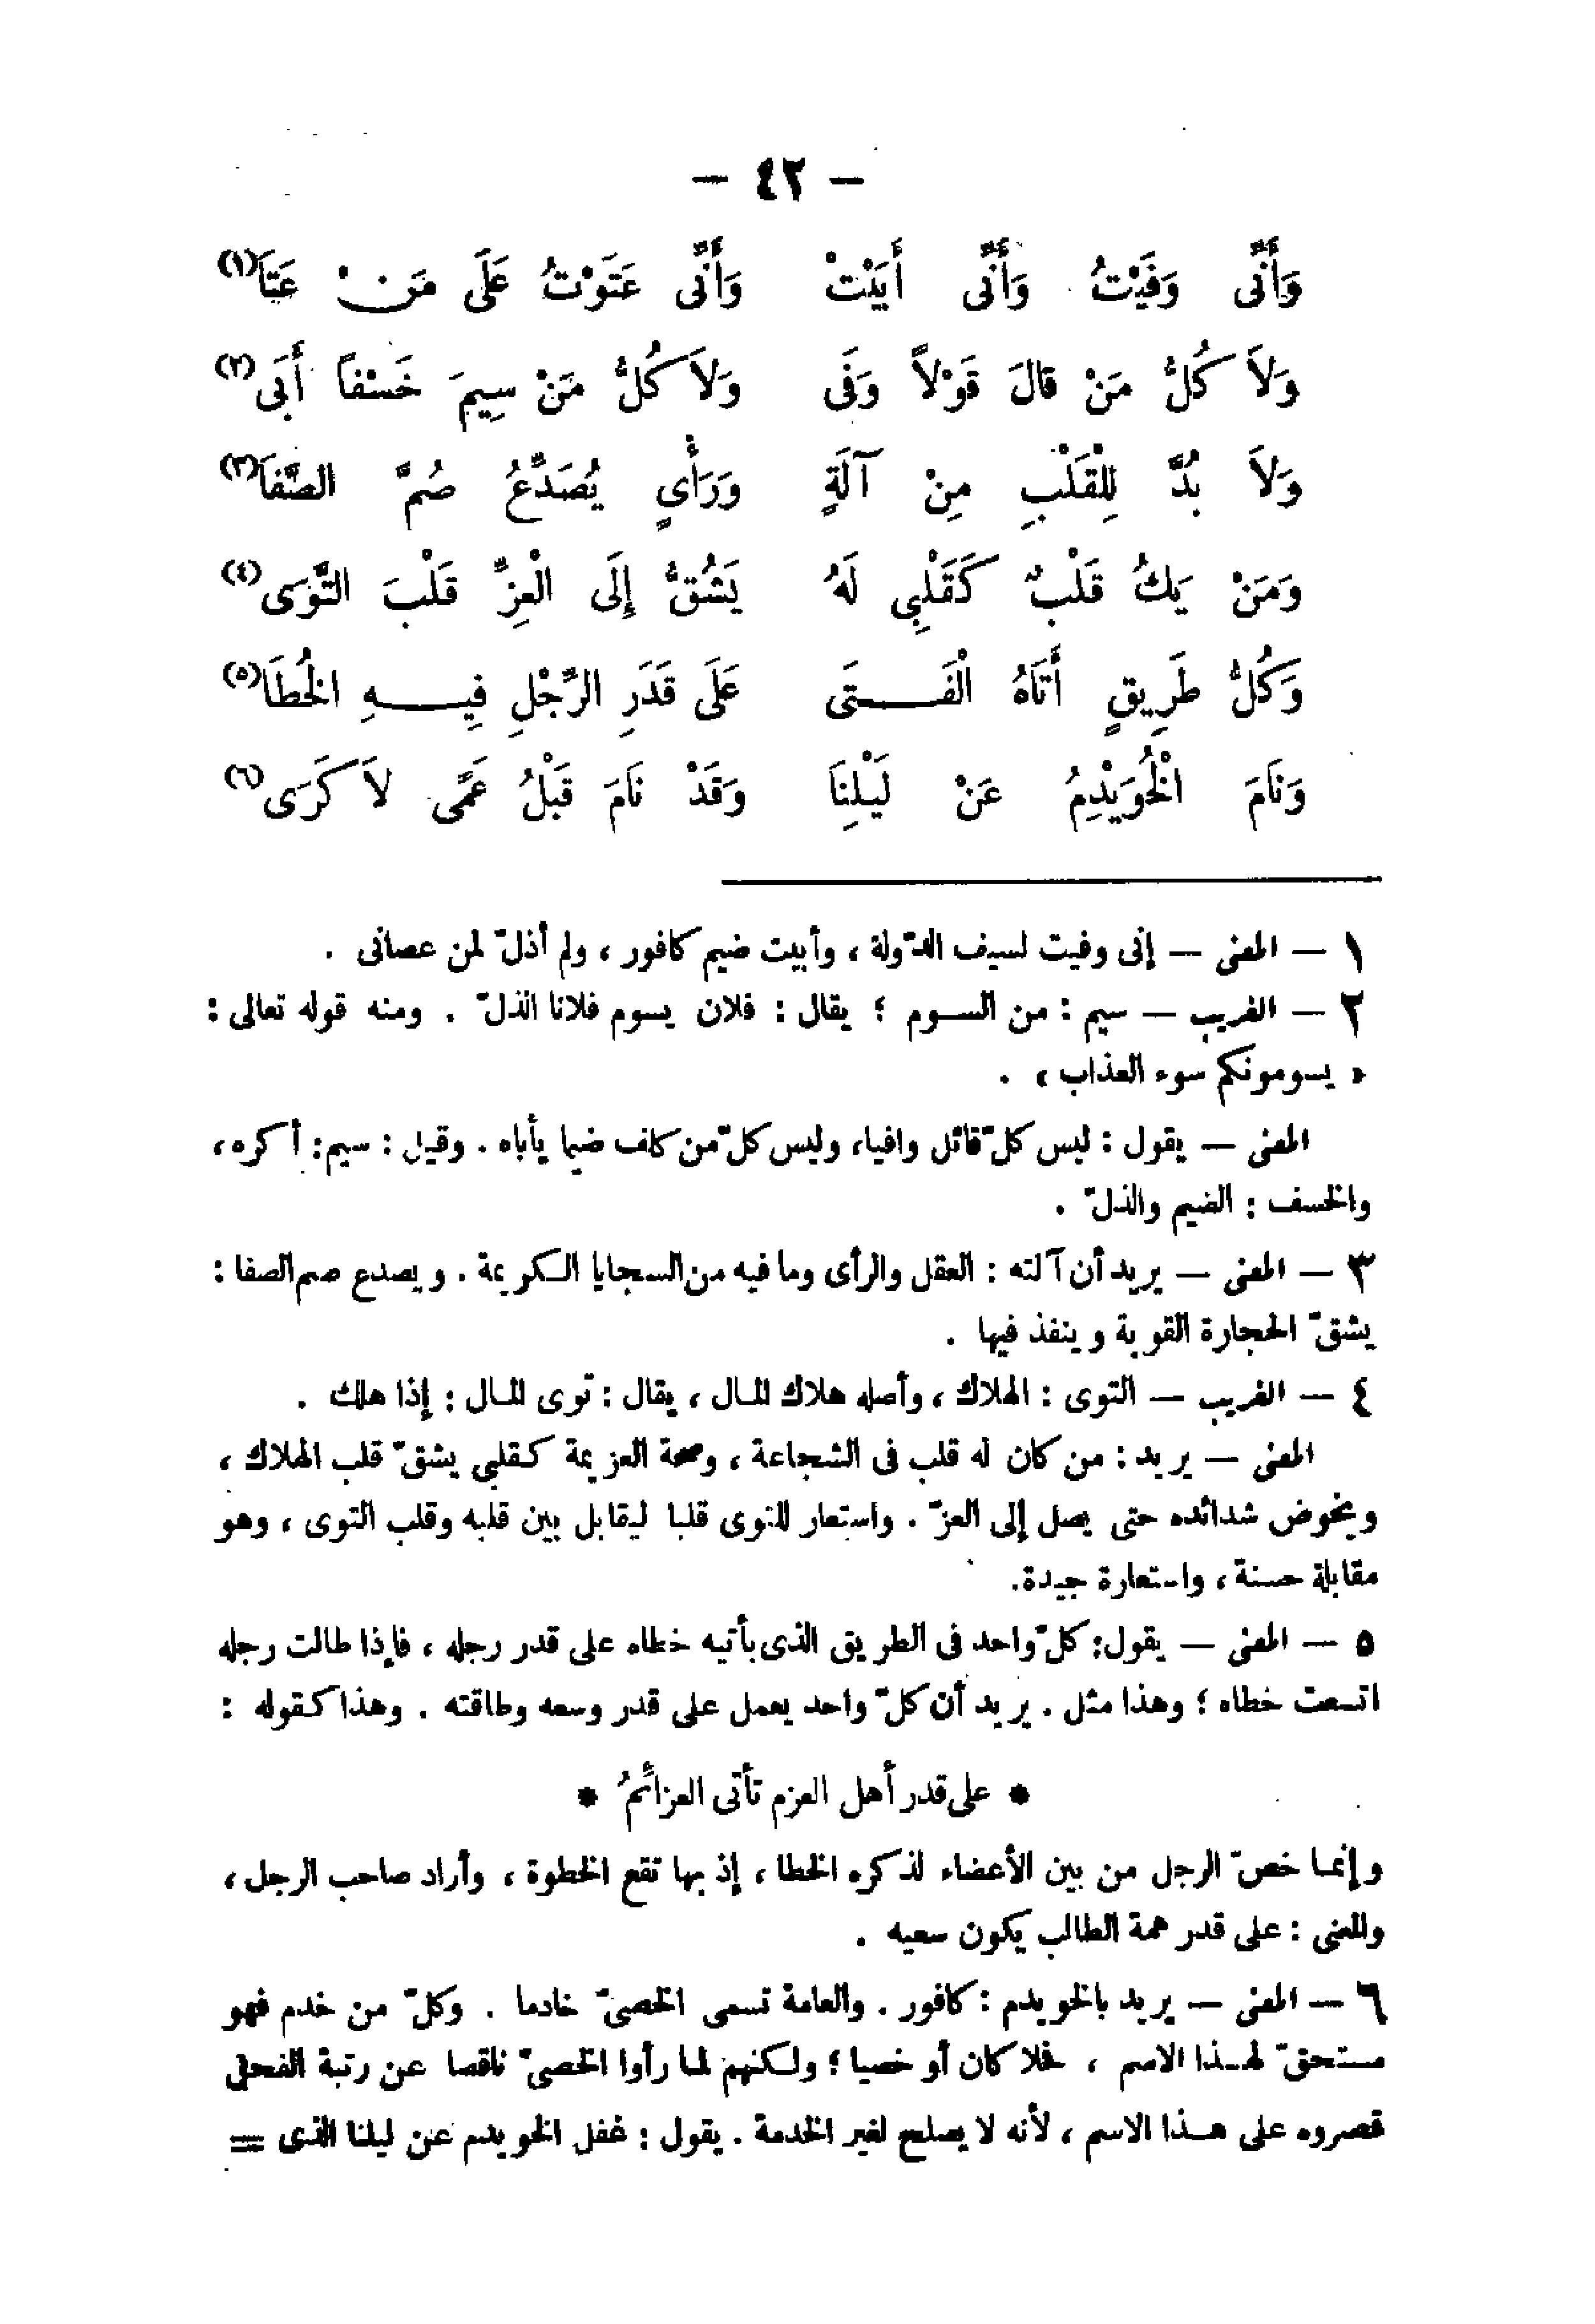 — ٤٢ —
وَأَنِّى وَفَيْتُ وَأَنِّى أَبَيْتْ وَأَنِّى عَتَوْتُ عَلَى مَنْ عَتَا(١)
وَلاَ كُلُّ مَنْ قالَ قَوْلاً وَفَى وَلاَ كُلُّ مَنْ سِيمَ خَسْفاً أَبَى(٢)
وَلاَ بُدَّ لِلْقَلْبِ مِنْ آلَةٍ وَرَأْىٍ يُصَدِّعُ صُمَّ الصَّفَا(٣)
وَمَنْ يَكُ قَلْبٌ كَقَلْبِى لَهُ يَشُقُّ إِلَى الْعِزِّ قَلْبَ التَّوَى(٤)
وَكُلُّ طَرِيقٍ أَتَاهُ الْفَتَى عَلَى قَدَرِ الرِّجْلِ فِيهِ الْخُطَا(٥)
وَنَامَ الْخُوَيْدِمُ عَنْ لَيْلِنَا وَقَدْ نَامَ قَبْلُ عَمًى لاَ كَرَى(٦)
١ — المعنى — إنى وفيت لسيف الدّولة ، وأبيت ضيم كافور ، ولم أذلّ لمن عصانى .
٢ — الغريب — سيم : من السوم ؛ يقال : فلان يسوم فلانا الذلّ . ومنه قوله تعالى :
« يسومونكم سوء العذاب » .
المعنى — يقول : ليس كلّ قائل وافيا ، وليس كلّ من كلف ضيما يأباه . وقيل : سيم : أكره ،
والخسف : الضيم والذلّ .
٣ — المعنى — يريد أن آلته : العقل والرأى وما فيه من السجايا الكريمة . ويصدع صم الصفا :
يشقّ الحجارة القوية وينفذ فيها .
٤ — الغريب — التوى : الهلاك ، وأصله هلاك المال ، يقال : توى المال : إذا هلك .
المعنى — يريد : من كان له قلب فى الشجاعة ، وصحة العزيمة كقلبى يشقّ قلب الهلاك ،
ويخوض شدائده حتى يصل إلى العزّ . واستعار للتوى قلبا ليقابل بين قلبه وقلب التوى ، وهو
مقابلة حسنة ، واستعارة جيدة.
٥ — المعنى — يقول : كلّ واحد فى الطريق الذى يأتيه خطاه على قدر رجله ، فإذا طالت رجله
اتسعت خطاه ؛ وهذا مثل . يريد أن كلّ واحد يعمل على قدر وسعه وطاقته . وهذا كقوله :
* على قدر أهل العزم تأتى العزائمُ *
وإنما خصّ الرجل من بين الأعضاء لذكره الخطا ، إذ بها تقع الخطوة ، وأراد صاحب الرجل ،
والمعنى : على قدر همة الطالب يكون سعيه .
٦ — المعنى — يريد بالخويدم : كافور . والعامة تسمى الخصىّ خادما . وكلّ من خدم فهو
مستحقّ لهذا الاسم ، فحلا كان أو خصيا ؛ ولكنهم لما رأوا الخصىّ ناقصا عن رتبة الفحل
قصروه على هذا الاسم ، لأنه لا يصلح لغير الخدمة . يقول : غفل الخويدم عن ليلنا الذى =